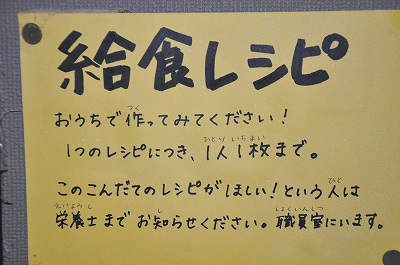 給食レシピ
おうちで作ってみてください!
1つのレシピにつき、1人1枚まで。
このこんだてのレシピがほしい!という人は
栄養士までお知らせください。職員室にいます。